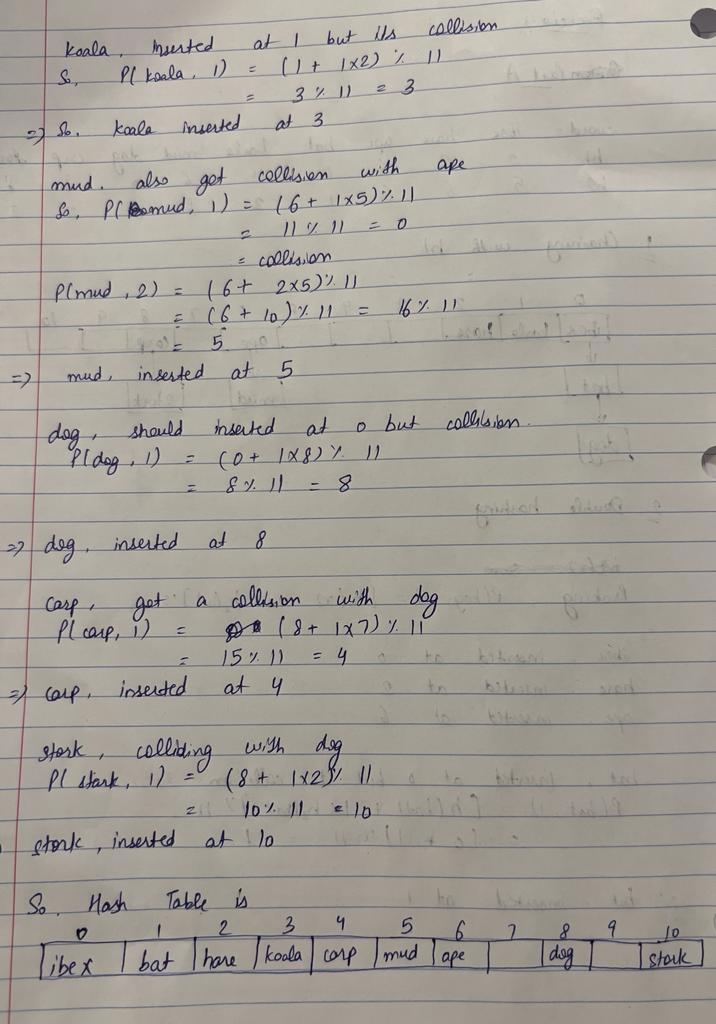 koala, inserted at 1 but its collision
So, P(koala, 1) = (1 + 1x2) % 11
= 3 % 11 = 3
=> So, koala inserted at 3
mud, also get collision with ape
So, P(mud, 1) = (6 + 1x5) % 11
= 11 % 11 = 0
= collision
P(mud, 2) = (6 + 2x5) % 11
= (6 + 10) % 11 = 16 % 11
= 5
=> mud, inserted at 5
dog, should inserted at 0 but collision.
P(dog, 1) = (0 + 1x8) % 11
= 8 % 11 = 8
=> dog, inserted at 8
carp, got a collision with dog
P(carp, 1) = (8 + 1x7) % 11
= 15 % 11 = 4
=> carp, inserted at 4
stork, colliding with dog
P(stork, 1) = (8 + 1x2) % 11
= 10 % 11 = 10
stork, inserted at 10
So, Hash Table is
0 1 2 3 4 5 6 7 8 9 10
ibex bat hare koala carp mud ape dog stork